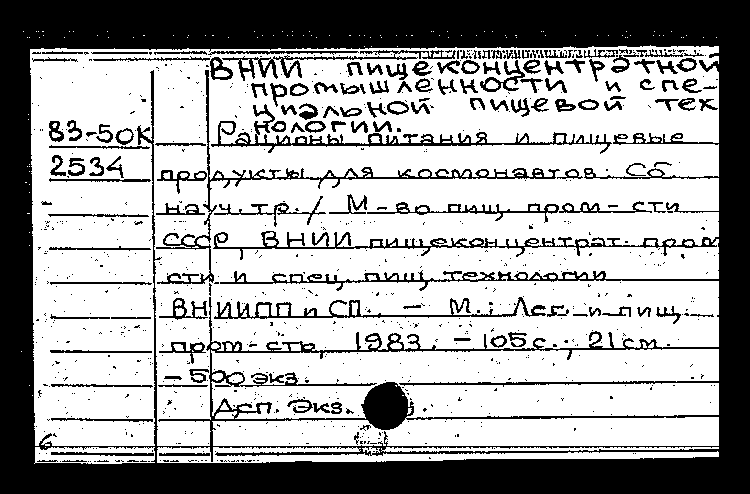 ВНИИ пищеконцентратной
промышленности и спе-
циальной пищевой тех
нологии.
83-50К Рационы питания и пищевые
2534 продукты для космонавтов: Сб.
науч. тр. / М-во пищ. пром-сти
СССР, ВНИИ пищеконцентрат. пром
сти и спец. пищ. технологии
ВНИИПП и СП. - М.: Лег. и пищ.
пром-сть, 1983. - 105 с.; 21 см.
- 500 экз.
экз.
6